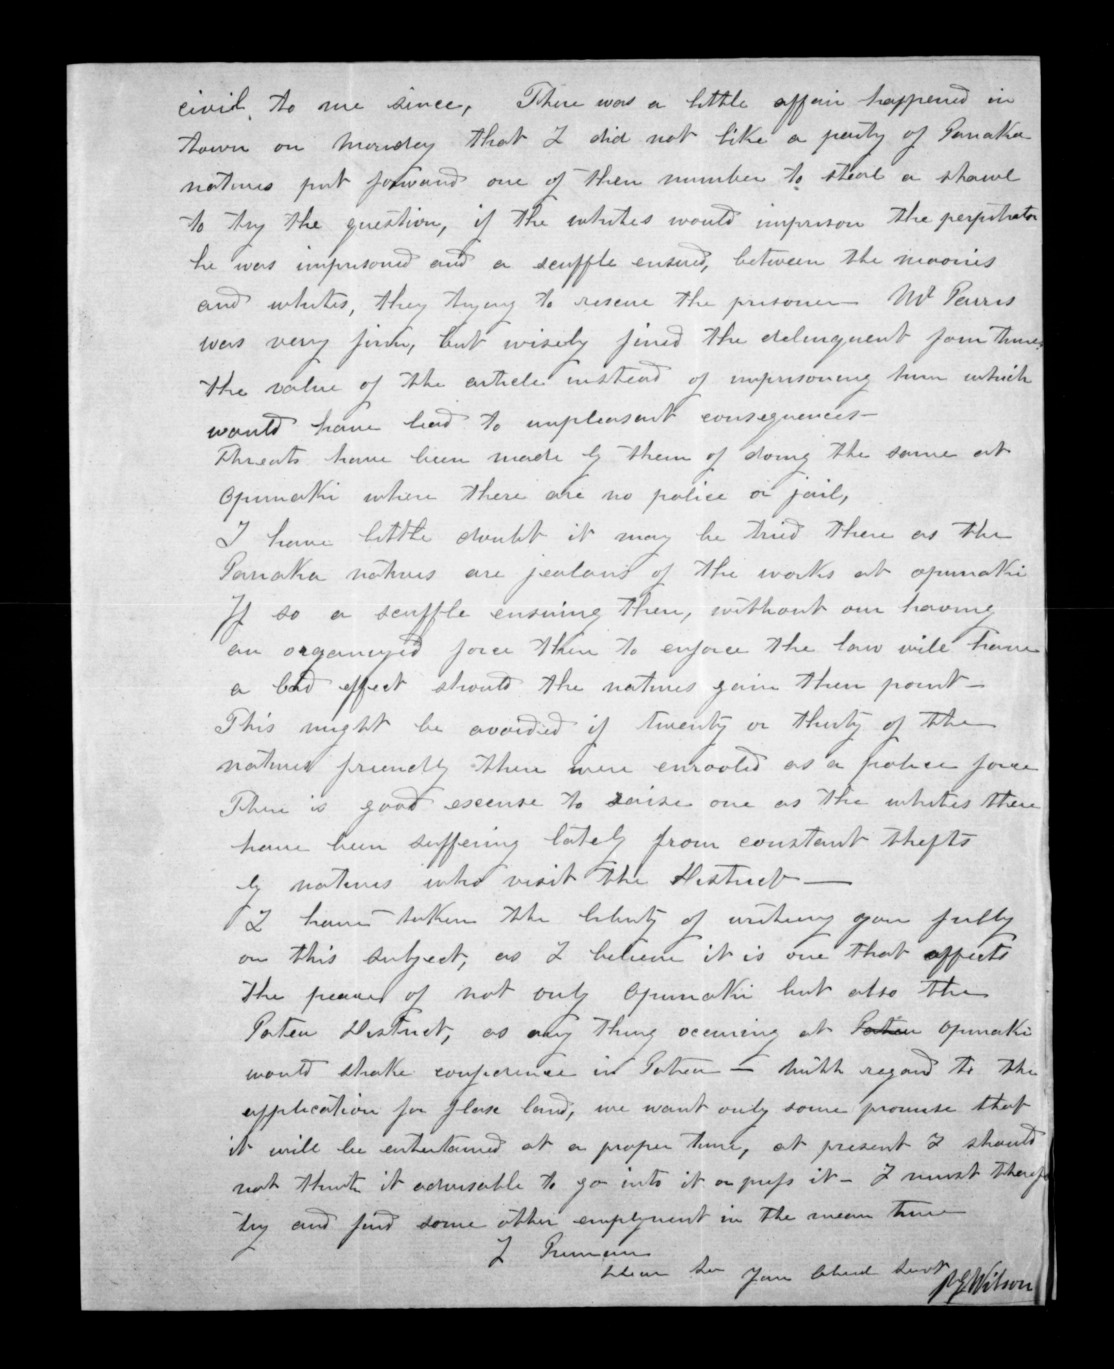 civil, to me since, There was a little affair happened in
town on Monday that I did not like a party of Tanaka
natives put forward one of their number to steal a shawl
to try the question, if the whites would imprison the perpitrator
he was imprisoned and a scuffle ensued, between the maories
and whites, they trying to rescue the prisoner — Mr Parris
was very firm, but wisely fined the delinquent four times
the value of the article instead of imprisoning him which
would have lead to unpleasant consequences —
Threats have been made by them of doing the same at
Opunaki where there are no police or jail,
I have little doubt it may be tried there as the
Tanaka natives are jealous of the works at opunaki
If so a scuffle ensuing there, without our having
an organized force there to enforce the law will have
a bad effect should the natives gain their point —
This might be avoided if twenty or thirty of the
natives friendly there were enrooled as a police force
There is good excuse to raise one as the whites there
have been suffering lately from constant thefts
by natives who visit the District —
I have taken the liberty of writing you fully
on this subject, as I believe it is one that affects
the peace of not only Opunaki but also the
Patea District, as any thing occuring at Patea Opunaki
would shake confidence in Patea — With regard to the
application for flax land, we want only some promise that
it will be entertained at a proper time, at present I should
not think it advisable to go into it or press it — I must
try and find some other employment in the mean time
I Remain
Dear Sir Your Obed Servt Wilson